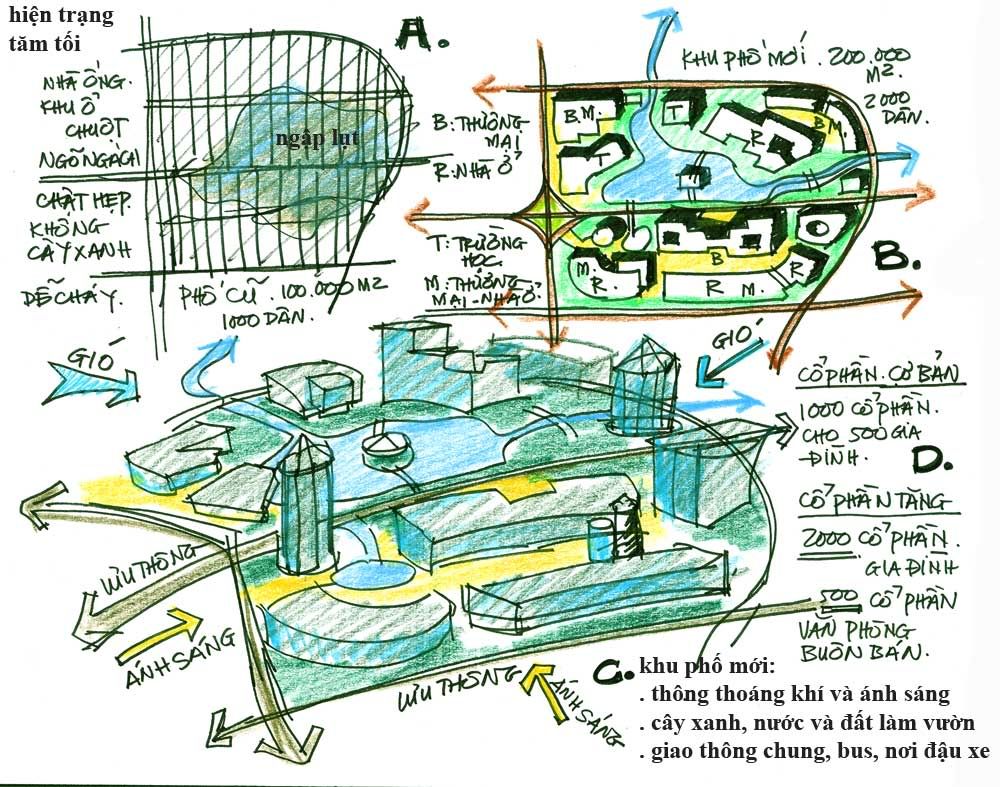 hiện trạng
tăm tối
A.
NHÀ ỐNG.
KHU Ổ
CHUỘT
NGÕ NGÁCH
CHẬT HẸP.
KHÔNG
CÂY XANH
DỄ CHÁY.
ngập lụt
PHỐ CŨ. 100.000 M2
1000 DÂN.
KHU PHỐ MỚI. 200.000
M2.
2000
DÂN.
B: THƯƠNG
MẠI
R: NHÀ Ở
T: TRƯỜNG
HỌC.
M: THƯƠNG
MẠI - NHÀ Ở.
B M.
T
T
R
B M.
M.
R.
B
R M.
R
B.
GIÓ
GIÓ
LƯU THÔNG
ÁNH SÁNG
LƯU THÔNG
ÁNH SÁNG
CỔ PHẦN CƠ BẢN
1000 CỔ PHẦN.
CHO 500 GIA
-ĐÌNH.
D.
CỔ PHẦN TĂNG
2000 CỔ PHẦN.
GIA ĐÌNH
500 CỔ PHẦN
VĂN PHÒNG
BUÔN BÁN.
C. khu phố mới:
. thông thoáng khí và ánh sáng
. cây xanh, nước và đất làm vườn
. giao thông chung, bus, nơi đậu xe